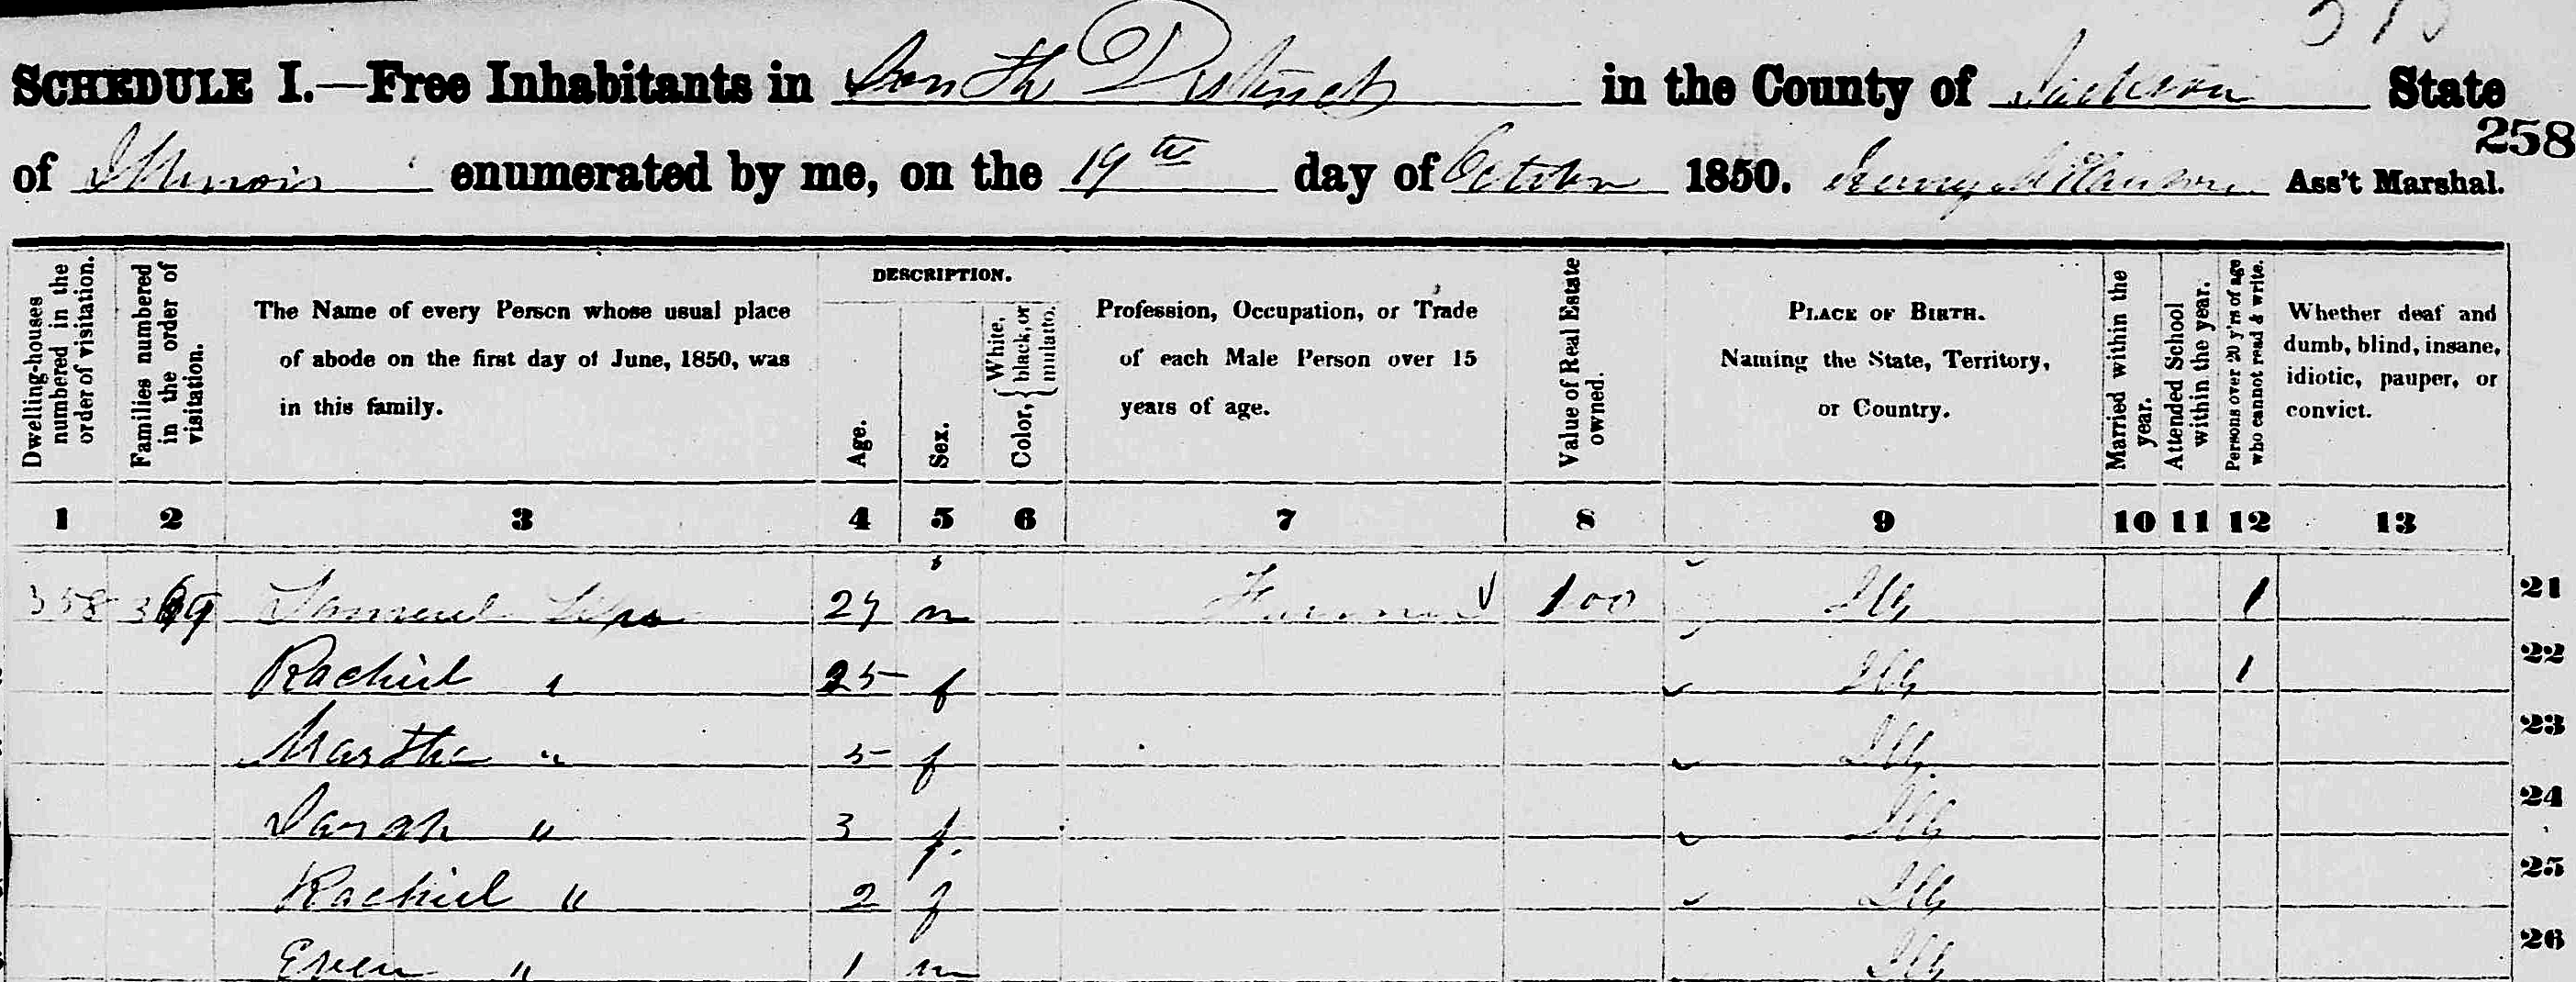 SCHEDULE I.—Free Inhabitants in South District in the County of Jackson State
258
of Illinois enumerated by me, on the 19th day of October 1850. Henry Ass't Marshal.
Dwelling-houses numbered in the order of visitation.
Families numbered in the order of visitation.
The Name of every Person whose usual place of abode on the first day of June, 1850, was in this family.
DESCRIPTION.
Age.
Sex.
Color, { White, black, or mulatto.
Profession, Occupation, or Trade of each Male Person over 15 years of age.
Value of Real Estate owned.
PLACE OF BIRTH. Naming the State, Territory, or Country.
Married within the year.
Attended School within the year.
Persons over 20 y'rs of age who cannot read & write.
Whether deaf and dumb, blind, insane, idiotic, pauper, or convict.
1 2 3 4 5 6 7 8 9 10 11 12 13
358 Samuel m Farmer 100 Ills 1 21
Rachiel " 25 f Ills 1 22
Martha " 5 f Ills 23
Sarah " 3 f Ills 24
Rachiel " 2 f Ills 25
Even " 1 m Ills 26